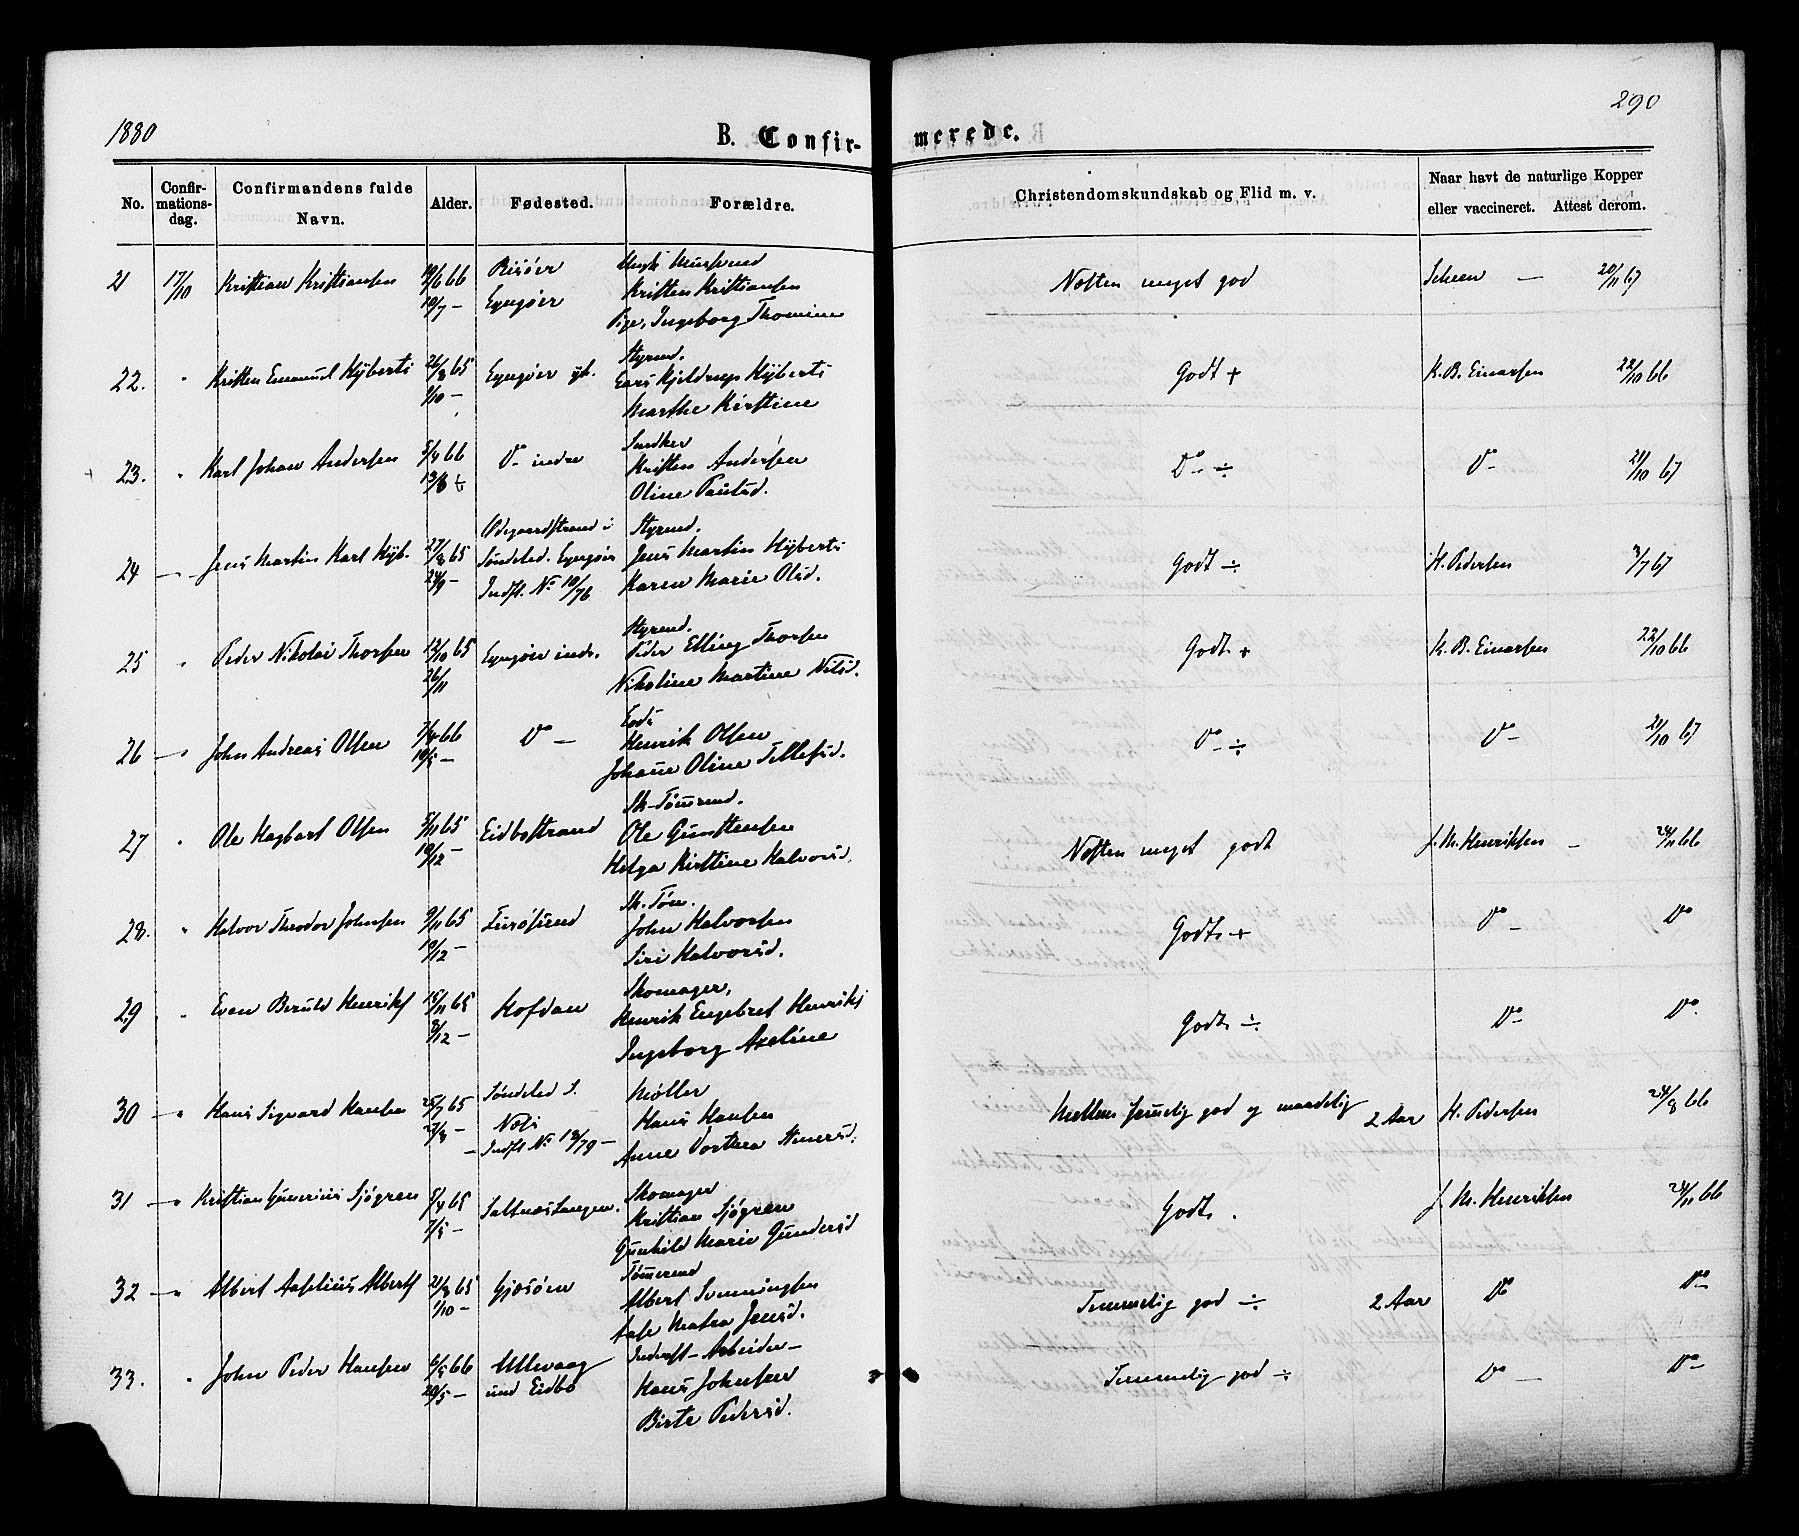 1880
290
B. Confir-
merede.
No.
Confir-
mations-
dag.
Confirmandens fulde
Navn.
Alder.
Fødested.
Forældre.
Christendomskundskab og Flid m. v.
Naar havt de naturlige Kopper
eller vaccineret. Attest derom.
21 17/10 Kristian Kristiansen 19/6 66 Risöer
10/7 — Eyngöer Kristen Kristiansen
Pige, Ingeborg Thomine
Næsten meget god Scheen — 20/11 67
22. " Kristen Emanuel Hyberts 26/8 65 Eyngöer Styrmd.
1/10 — Lars Kjeldrup Hyberts
Marthe Kirstine
Godt + K. B. Einarsen 22/10 66
23. " Karl Johan Andersen 5/4 66 Do indre Snedker
13/8 Kristen Andersen
Oline Paulsd.
Do ÷ Do 21/10 67
24 — " Jens Martin Karl Hyb. 27/8 65 Ødegaardstrand i Styrmd.
24/9 — Söndeled. Eyngöer Jens Martin Hyberts
Indfl. No 10/76 Karen Marie Olsd.
Godt ÷ H. Pedersen 3/7 67
25 " Peder Nikolai Thorsen 12/10 65 Eyngöer indr. Styrmd.
26/11 Peder Elling Thorsen
Nikoline Martine Nilsd.
Godt + K. B. Einarsen 22/10 66
26 — " John Andreas Olsen 7/4 66 Do — Lods
10/5 — Henrik Olsen
Johanne Oline Tellefsd.
Do ÷ Do 21/10 67
27 " Ole Hagbart Olsen 5/11 65 Eidbostrand Sk-Tömrmd.
10/12 — Ole Gunstensen
Helga Kirstine Halvorsd.
Næsten meget godt J. M. Henriksen — 24/11 66
28. " Halvor Theodor Johnsen 9/11 65 Furösund Sk. Töm.
10/12 — John Halvorsen
Siri Halvorsd.
Godt + Do Do
29 " Even Beruld Henriks 15/11 65 Hofdan Skomager,
3/12 — Henrik Engebret Henriks
Ingeborg Axeline
Godt ÷ Do Do
30 — " Hans Sigvard Hansen 25/7 65 Söndeled S. Möller
27/8 — Næs Hans Hansen
Indfl No 13/79 — Anne Dorthea
Mellem temmelig god og maadelig 2 Aar H. Pedersen 24/8 66
31 — " Kristian Gunerius Sjögren 5/4 65 Saltnæstangen. Skomager
7/5 — Kristian Sjögren
Gunhild Marie Gundersd
Godt. J. M. Henriksen 24/11 66
32 — " Albert Aselius Alberts 21/8 65 Gjæsöen Tömmermd
1/10 — Albert Svenningsen
Mathea Jensd.
Temmelig god ÷ 2 Aar Do Do
33. " John Peder Hansen 6/4 66 Ullevaag Inderst-Arbeider-
20/5 — und Eidbo Hans Johnsen
Birte Pedersd.
Temmelig god ÷ Do — Do